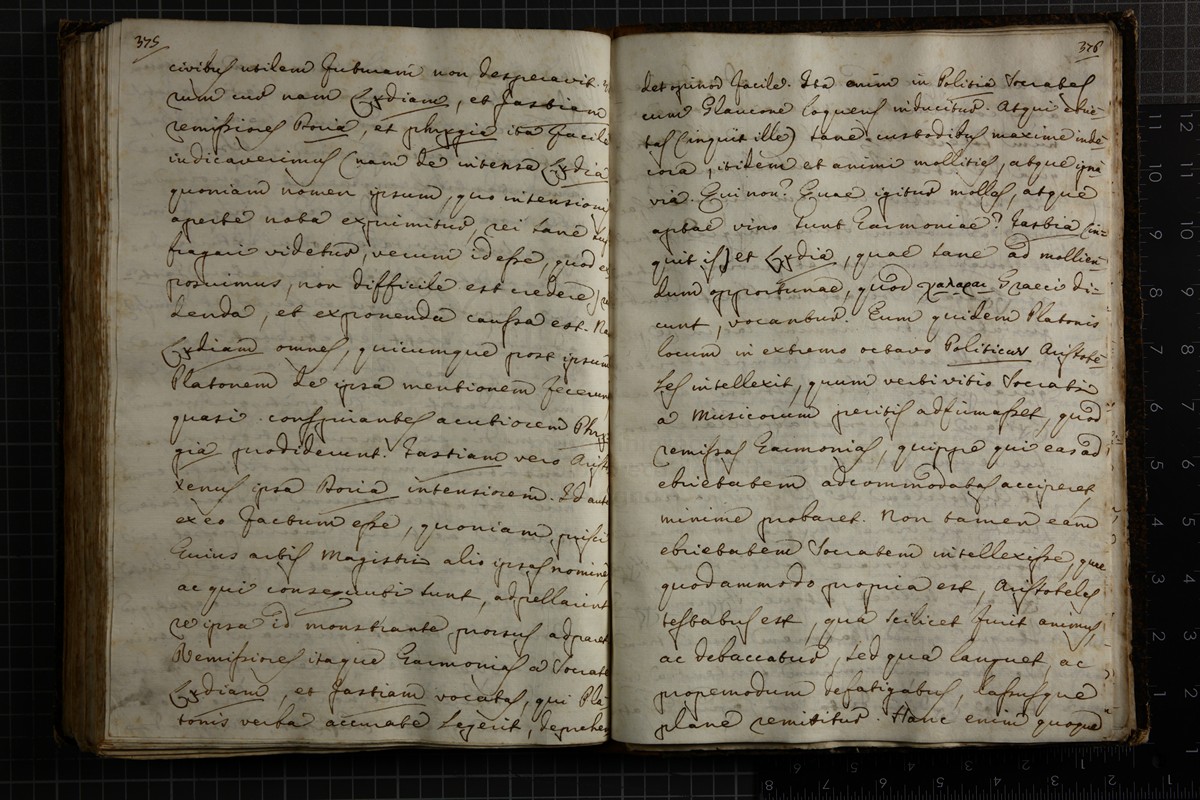 375
civibus utilem futuram non desperavit.
rum cur nam Lydiam, et Iastiam
remissiores Doria, et phrygia ita facile
indicaverimus (nam de intensa Lydia
quoniam nomen ipsum, quo intensioni
aperte nota exprimitur, rei sane suf
fragari videtur, verum id esse, quod ex
posuimus, non difficile est credere)
denda, et exponenda caussa est. Na
Lydiam omnes, quicumque post ipsum
Platonem de ipsa mentionem fecerun
quasi conspirantes acutiorem Phry
gia prodiderunt. Iastiam vero Arist
xenus ipsa Doria intensiorem. Id aute
ex eo factum esse, quoniam prisci
huius artis Magistri alio ipsas nomine
ac qui consequuti sunt, adpellarint
re ipsa id monstrante prorsus adparet
Remissiores itaque harmonias a Socrate
Lydiam, et Iastiam vocatas, qui Pla-
tonis verba accurate legerit, deprehen
376
det opinor facile. Ita enim in Politia Socrates
cum Glaucone loquens inducitur. Atqui ebrie
tas (inquit ille) sane custodibus maxime inde
cora, itidem et animi mollities, atque igna
via. Qui non? Quae igitur molles, atque
aptae vino sunt harmoniae? Iastia (in-
quit is) et Lydia, quae sane ad mollien-
dum opportunae, quod χαλαραι Graeci di-
cunt, vocantur. Eum quidem Platonis
locum in extremo octavo Politicωv Aristote
les intellexit, quum verti vitio Socrati
a Musicorum peritis adfirmasset, quod
remissas harmonias, quippe qui eas ad
ebrietatem adcommodatas acciperet
minime probaret. Non tamen eam
ebrietatem Socratem intellexisse, quae
quodammodo propria est, Aristoteles
testatus est, qua scilicet furit animus,
ac debaccatur, sed qua languet, ac
propemodum defatigatus, lassusque
plane remittitur. Hanc enim quoque